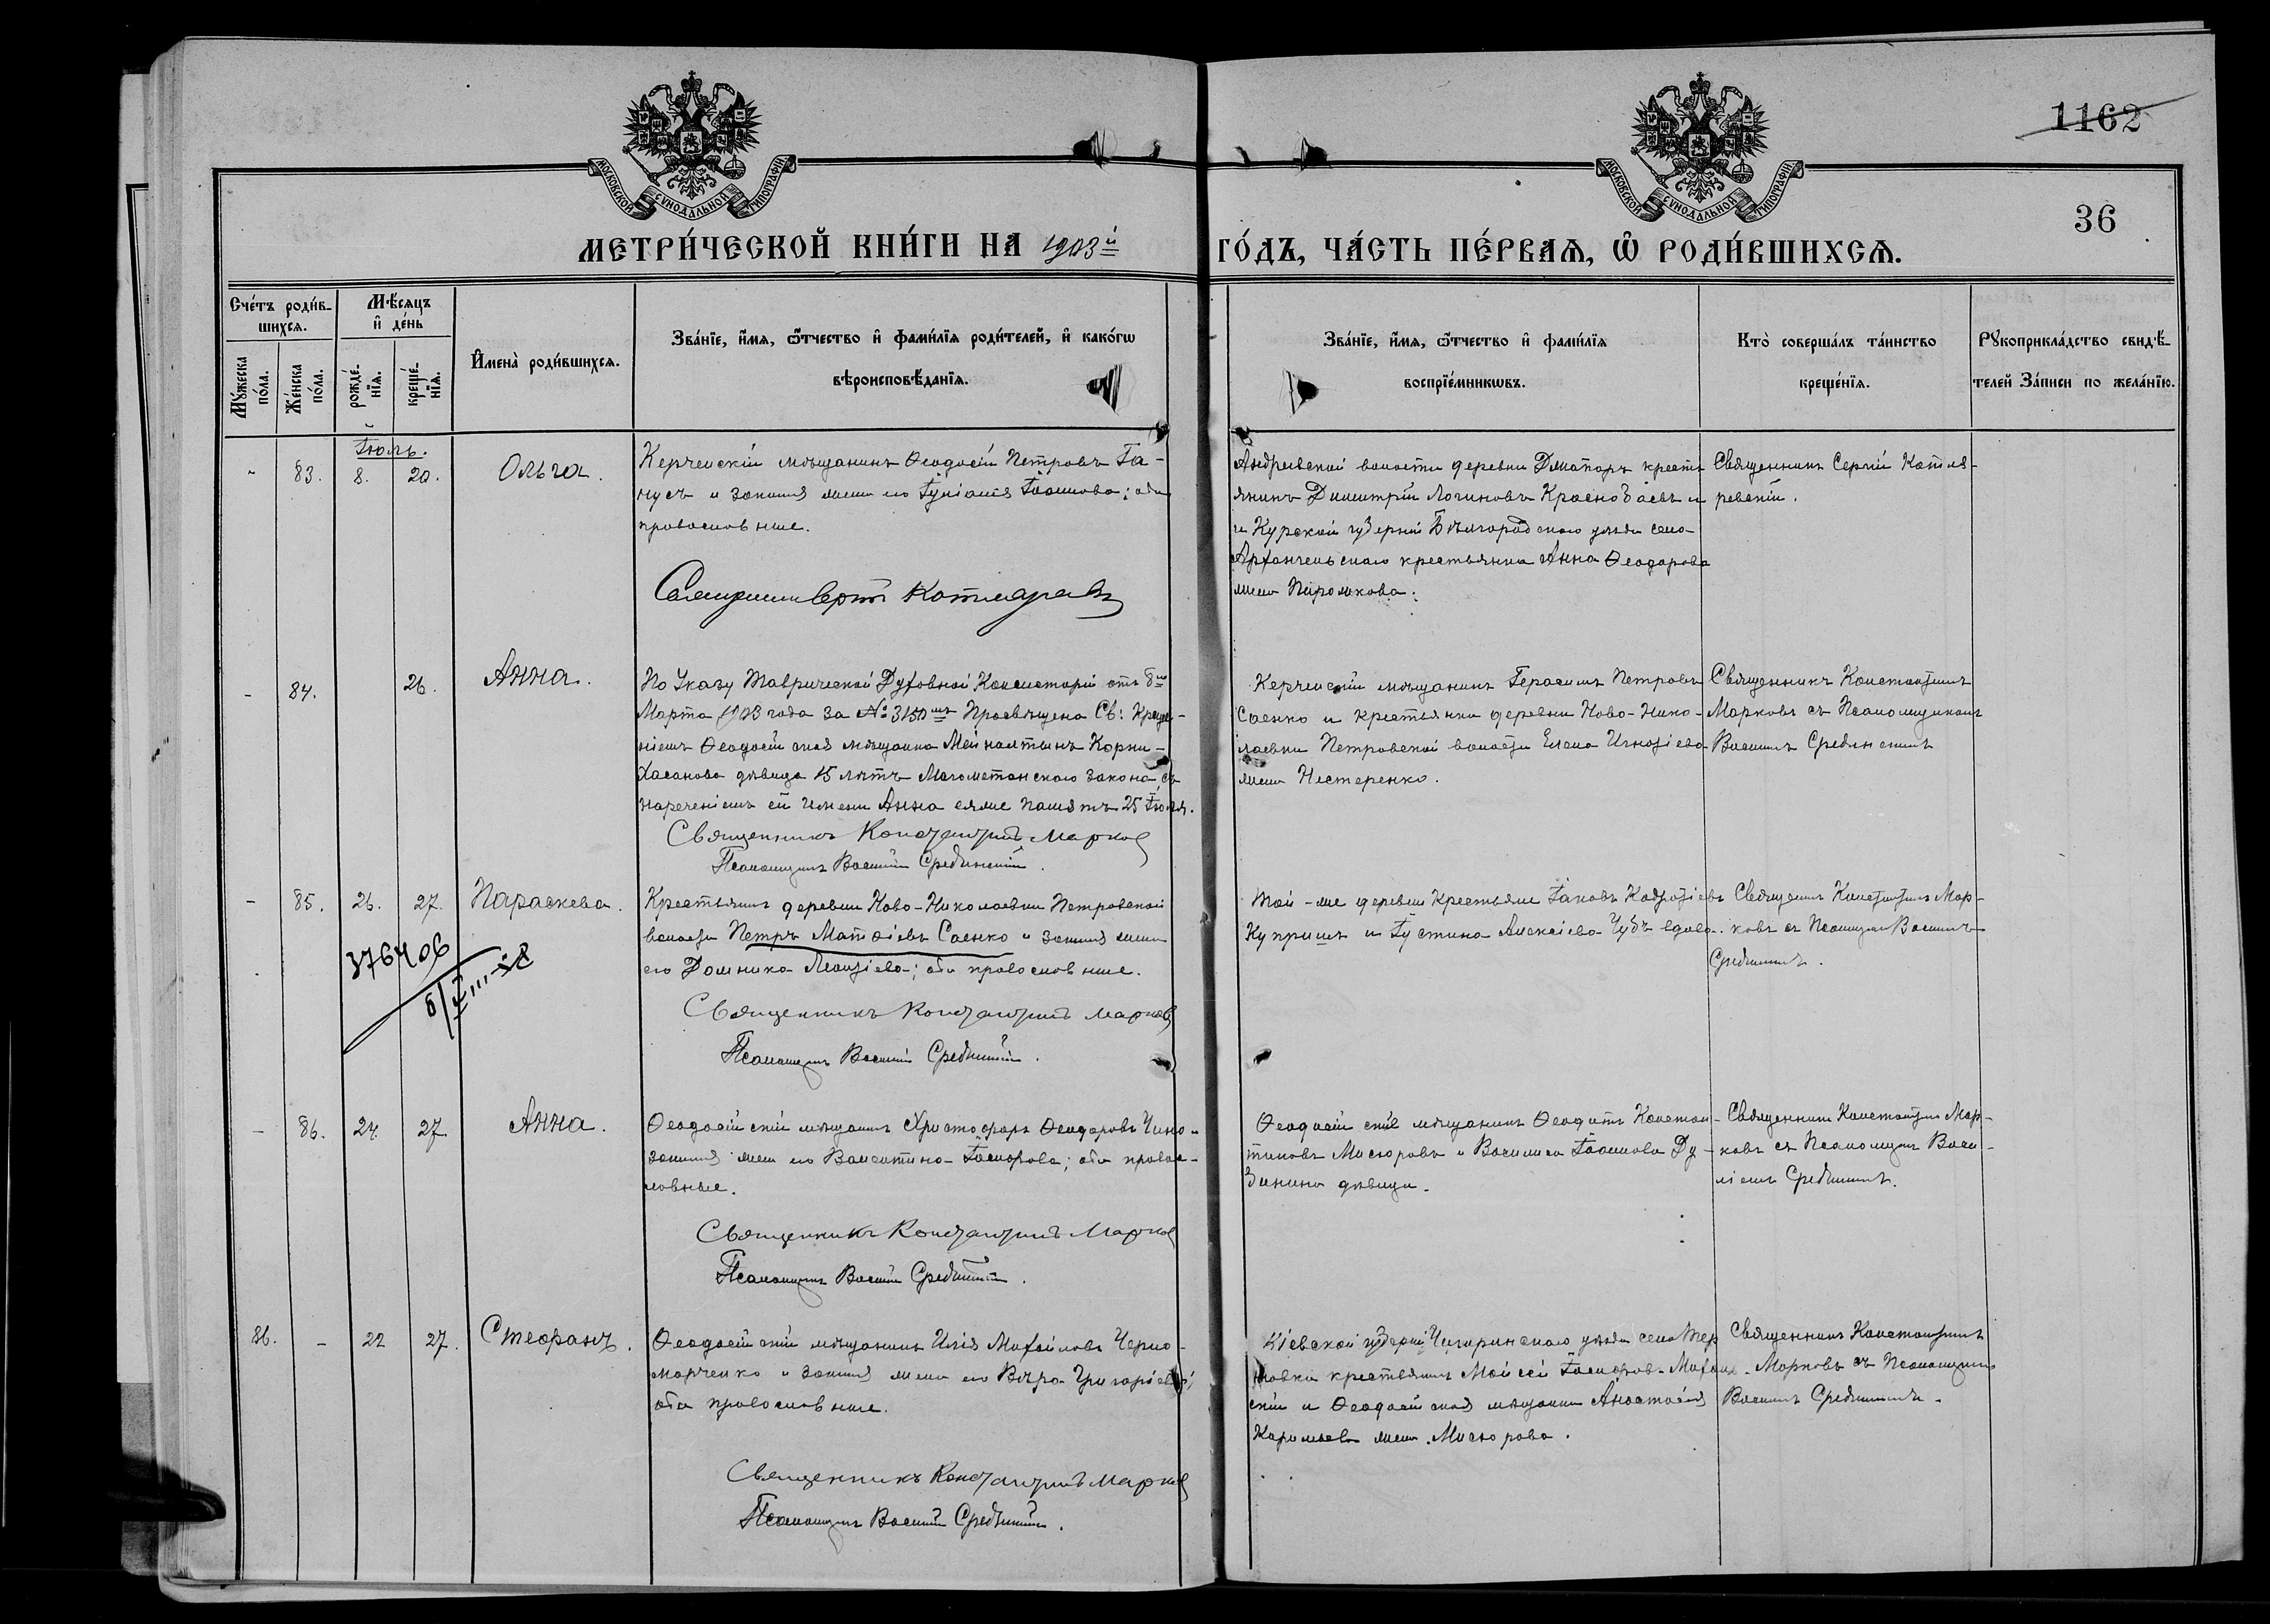 1162
36
МОСКОВСКОЙ СѴНОДАЛЬНОЙ ТИПОГРАФІИ
МОСКОВСКОЙ СѴНОДАЛЬНОЙ ТИПОГРАФІИ
МЕТРИ́ЧЕСКОЙ КНИ́ГИ НА 1903й ГО́ДЪ, ЧА́СТЬ ПЕ́РВАѦ, Ѿ РОДИ́ВШИХСѦ.
Сче́тъ роди́в-
шихсѧ.
Мѣ́сѧцъ
и҆ де́нь
Мꙋ́жеска
по́ла.
Же́нска
по́ла.
рожде́-
нїѧ.
креще́-
нїѧ.
И҆мена̀ роди́вшихсѧ.
Зва́нїе, и҆́мѧ, ѻ҆́тчество и҆ фами́лїѧ роди́телей, и҆ како́гѡ
вѣроисповѣ́данїѧ.
Зва́нїе, и҆́мѧ, ѻ҆́тчество и҆ фами́лїѧ
воспрїе́мникѡвъ.
Кто̀ соверша́лъ та́инство
креще́нїѧ.
Рꙋкоприкла́дство свидѣ́-
телей За́писи по жела́нїю.
Іюль.
- 83. 8. 20. Ольга.
Керченскій мѣщанинъ Ѳеодосій Петровъ Га-
нусъ и законная жена его Іуліанія Іоаннова; оба
православные.
Священникъ Сергій Котляревскій
Андреевской волости деревни крестъ
янинъ Димитрій Логиновъ Краснобаевъ и
Курской губерніи Бѣлгородскаго уѣзда села
Архангельскаго крестьянка Анна Ѳеодорова
жена
Священникъ Сергій Котля-
ревскій.
- 84. 26. Анна.
По Указу Таврической Духовной Консисторіи отъ 8го
Марта 1903 года за № 3150мъ Просвѣщена Св: Креще-
ніемъ Ѳеодосійская мѣщанка Корни-
Хасанова дѣвица 15 лѣтъ Магометанскаго закона съ
нареченіемъ ей имени Анна память 25 Іюля.
Священникъ Константинъ Марковъ
Псаломщикъ Василій Срединскій.
Керченскій мѣщанинъ Герасимъ Петровъ
Саенко и крестьянка деревни Ново-Нико-
лаевки Петровской волости Елена Игнатіева
жена Нестеренко.
Священникъ Константинъ
Марковъ съ Псаломщикомъ
Василіемъ Срединскимъ
- 85. 26. 27. Параскева.
376406
Крестьянинъ деревни Ново-Николаевки Петровской
волости Петръ Матѳіевъ Саенко и законная жена
его Домника; оба православные.
Священникъ Константинъ Марковъ
Псаломщикъ Василій Срединскій.
Той-же деревни Крестьяне Іаковъ Кодратіевъ
Купришъ и Іустина Алексіева Чубъ вдова.
Священникъ Константинъ Мар-
ковъ съ Псаломщикомъ Василіемъ
Срединскимъ.
- 86. 24. 27. Анна.
Ѳеодосійскій мѣщанинъ Христофоръ Ѳеодоровъ
законная жена его Валентина; оба правос-
лавные.
Священникъ Константинъ Марковъ
Псаломщикъ Василій Срединскій.
Ѳеодосійскій мѣщанинъ Ѳеодотъ Констан-
тиновъ Мисюровъ и Василиса Іоаннова Ду-
бинина дѣвица.
Священникъ Константинъ Мар-
ковъ съ Псаломщикомъ Васи-
ліемъ Срединскимъ.
86. - 22 27. Стефанъ.
Ѳеодосійскій мѣщанинъ Илія Михайловъ Черно-
марченко и законная жена его Вѣра Григоріева;
оба православные.
Священникъ Константинъ Марковъ
Псаломщикъ Василій Срединскій.
Кіевской губерніи Чигиринскаго уѣзда села
крестьянинъ Моисей
скій и Ѳеодосійская мѣщанка Анастасія
жена Мисюрова.
Священникъ Константинъ
Марковъ съ Псаломщикомъ
Василіемъ Срединскимъ.